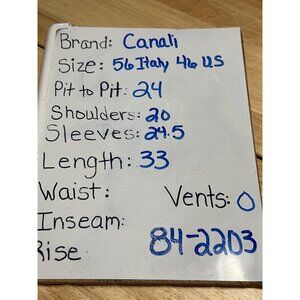 Brand: Canali
Size: 56 Italy 46 US
Pit to Pit: 24
Shoulders: 20
Sleeves: 24.5
Length: 33
Waist: Vents: 0
Inseam:
Rise 84-2203